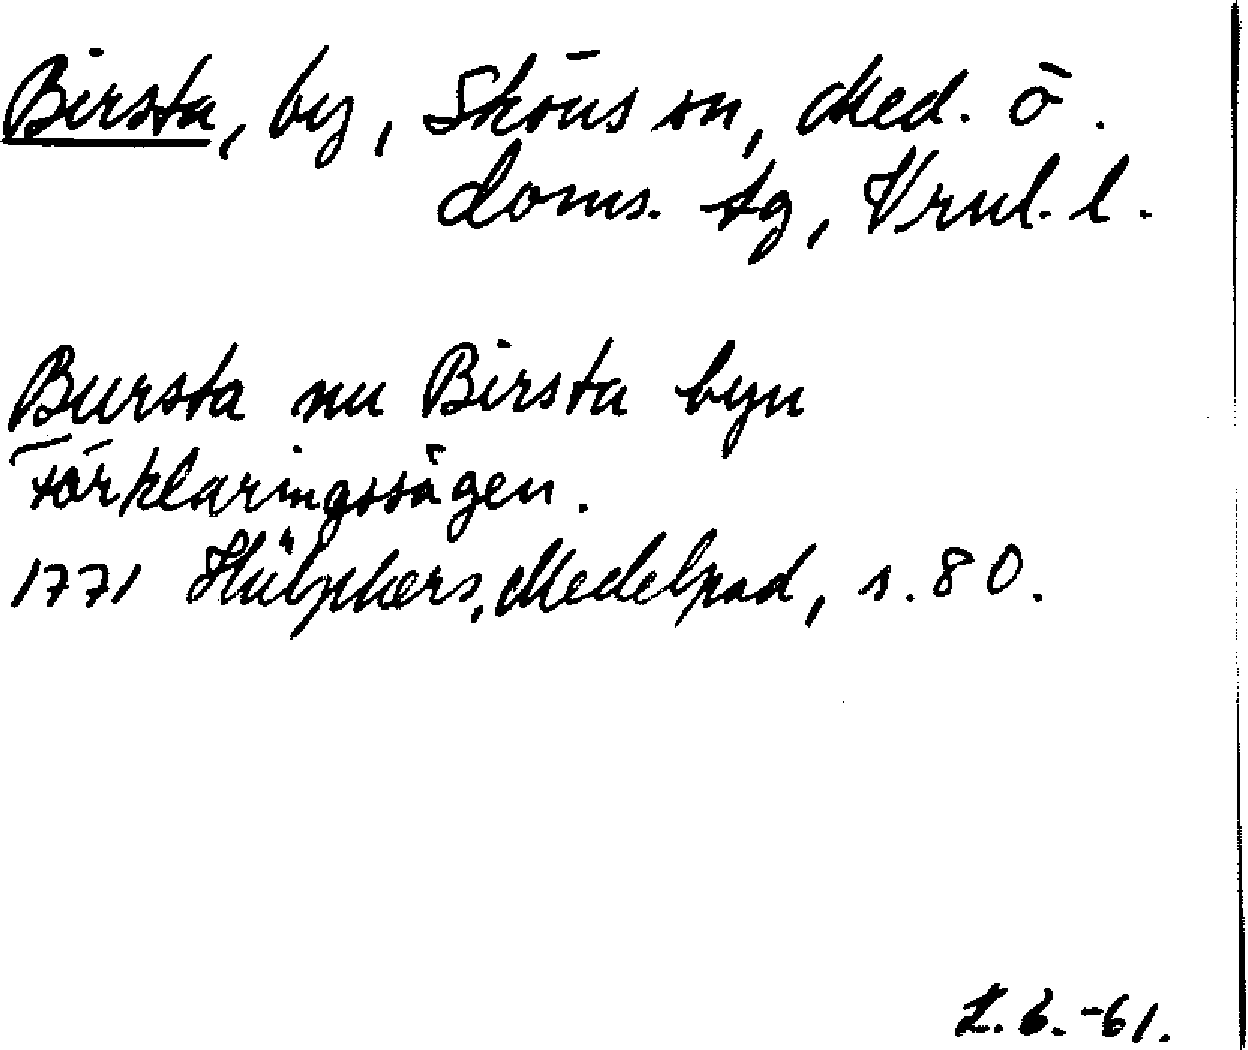 Birsta, by, Sköns sn, Med. ö.
doms. tg, Vrnl. l.
Bursta nu Birsta byn
Förklaringssägen.
1771 Hülphers, Medelpad, s. 80.
L. B. -61.